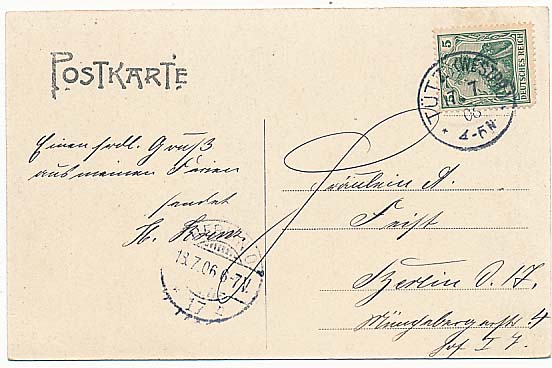 POSTKARTE
5
DEUTSCHES REICH
TÜTZ (WESTPR.)
7
06
4-5N
Einen frdl. Gruß
aus meinen Ferien
sendet
H.
13.7.06 6-7N.
17
Fräulein A.
Feist
Berlin O. 17.
Münchebergerstr 4
Hof I